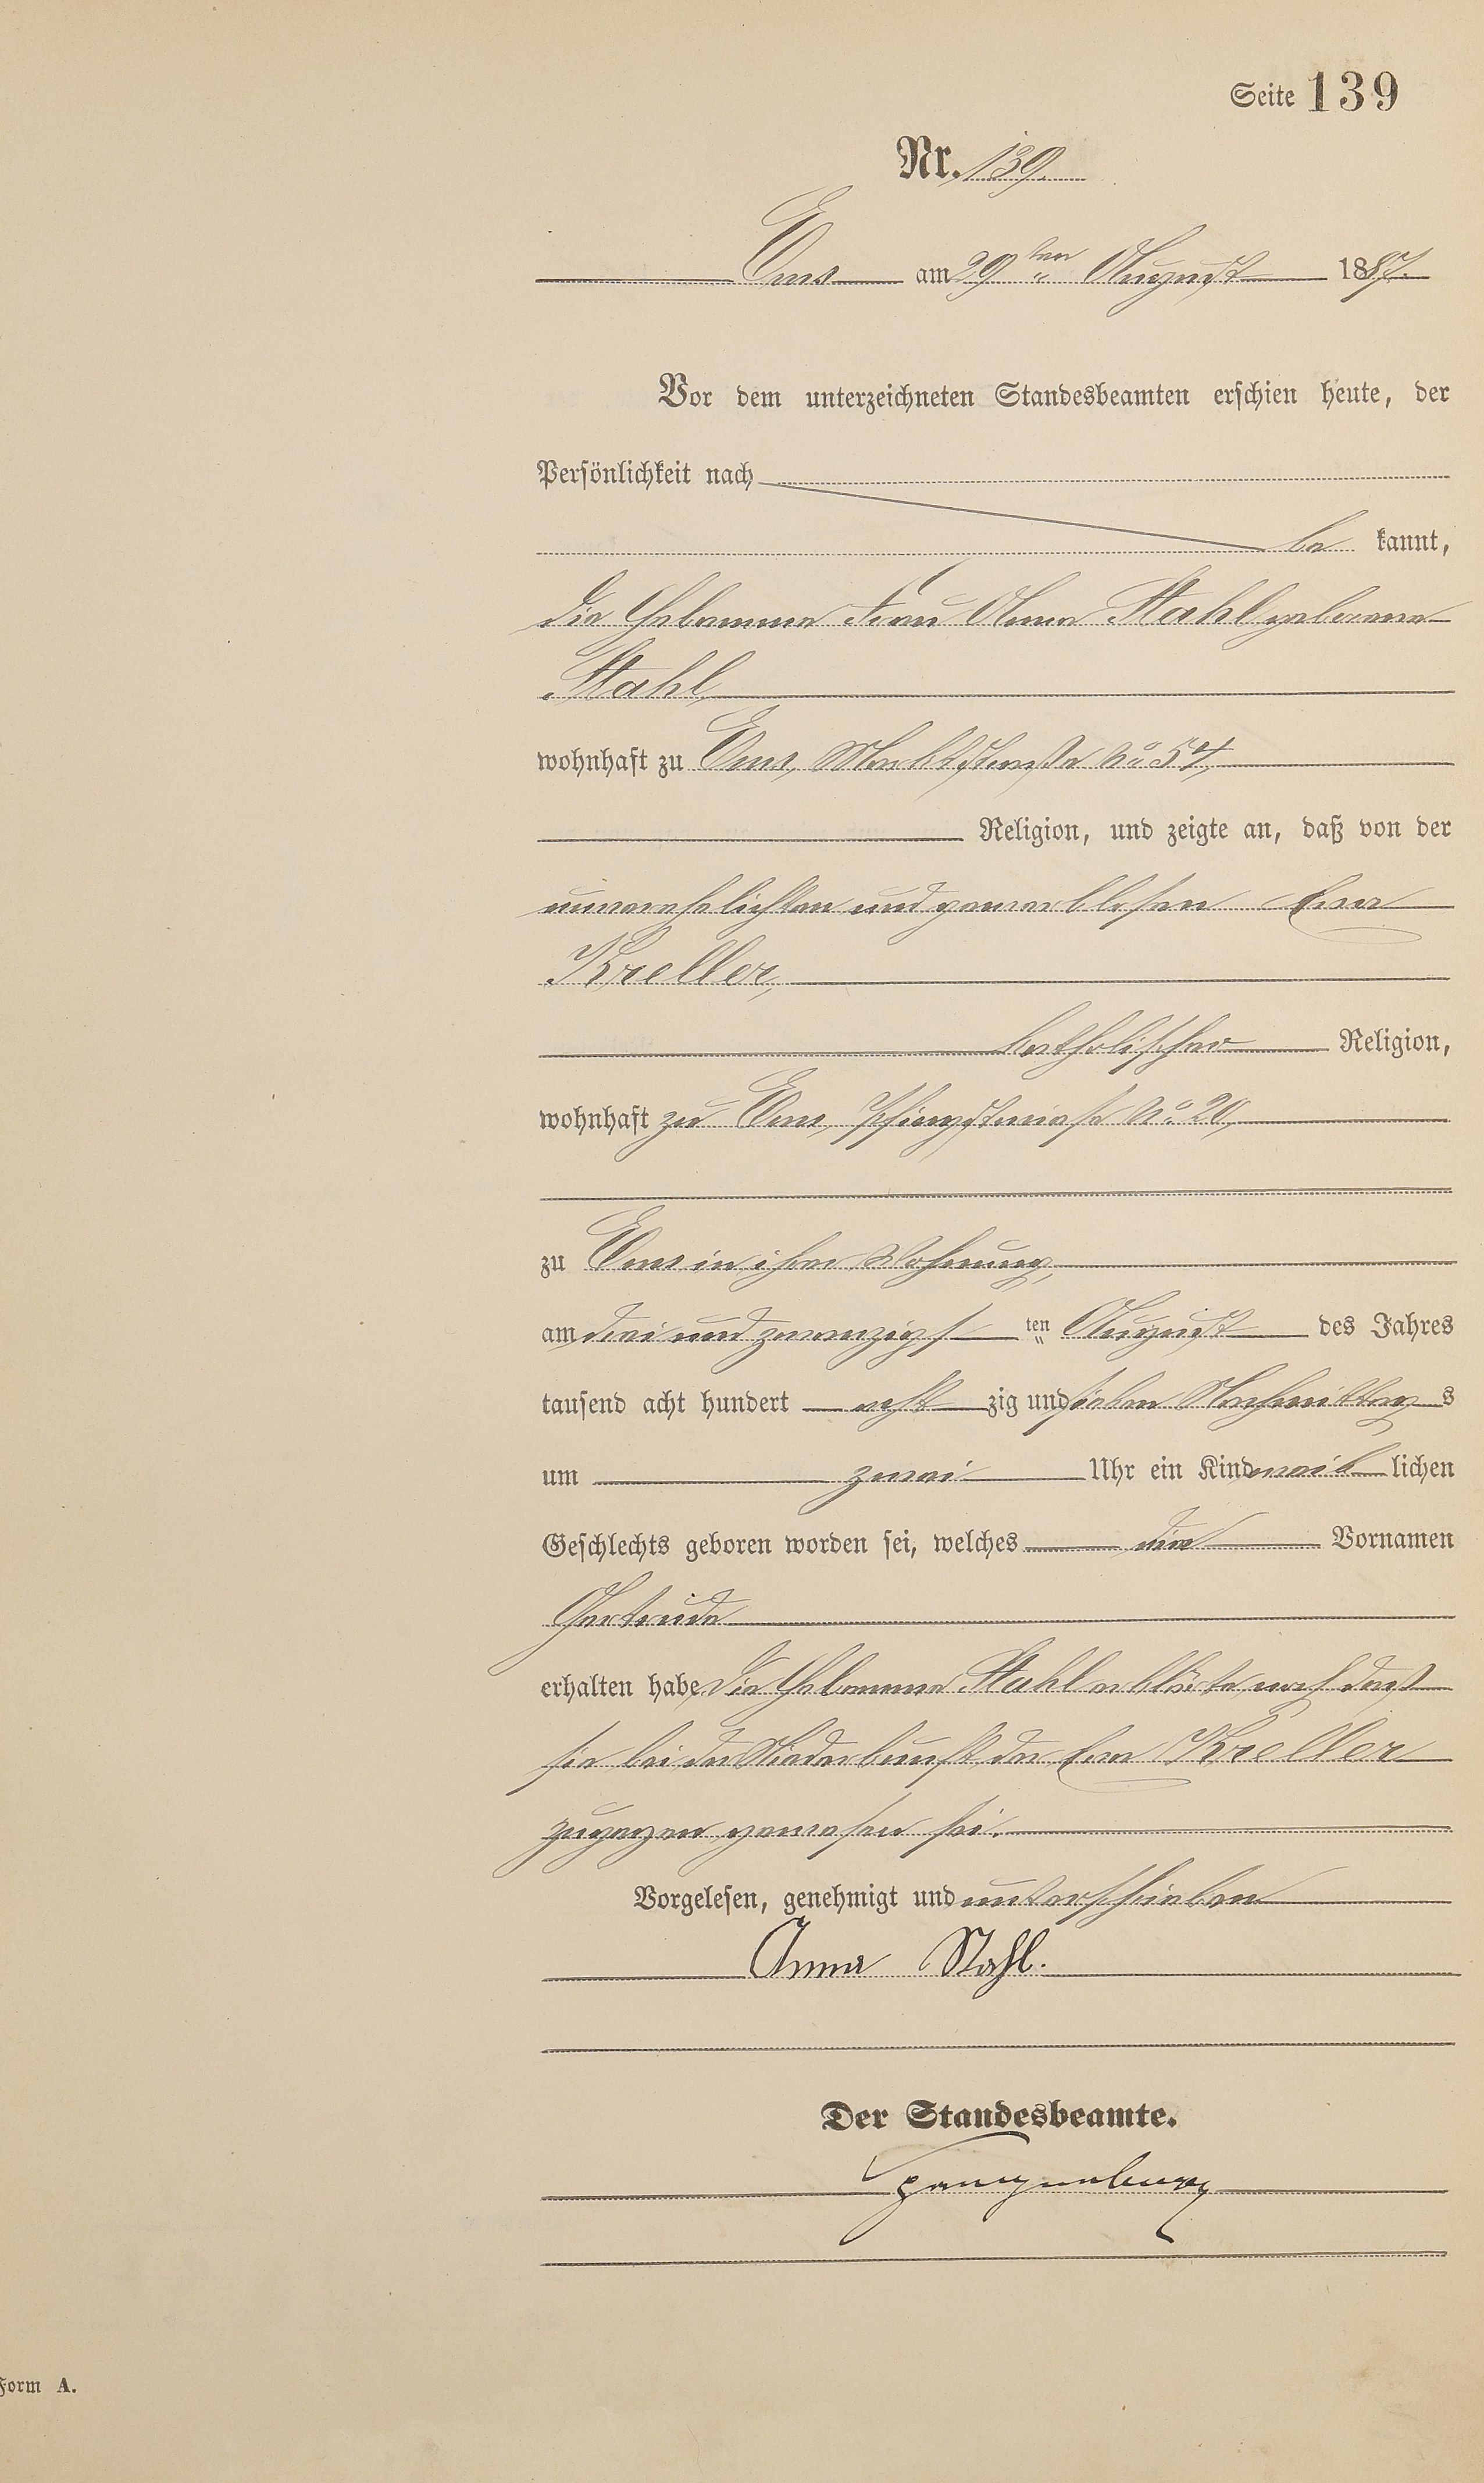 Seite 139
Nr. 139.
Ems am 29ten August 1887.
Vor dem unterzeichneten Standesbeamten erschien heute, der
Persönlichkeit nach
be kannt,
die Hebamme Frau Anna Stahl geborene
Stahl,
wohnhaft zu Ems, Marktstraße No 54,
Religion, und zeigte an, daß von der
unverehelichten und gewerblosen Eva
Kreller,
katholischer Religion,
wohnhaft zu Ems, Pfingstwiese No. 20,
zu Ems in ihrer Wohnung,
am drei und zwanzigsten August des Jahres
tausend acht hundert acht zig und sieben Nachmittags
um zwei Uhr ein Kind weib lichen
Geschlechts geboren worden sei, welches die Vornamen
Gertrude
erhalten habe Die Hebamme Stahl erklärte noch daß
sie bei der Niederkunft der Eva Kreller
zugegen gewesen sei.
Vorgelesen, genehmigt und unterschrieben
Anna Stahl.
Der Standesbeamte.
Spangenberg
Form A.